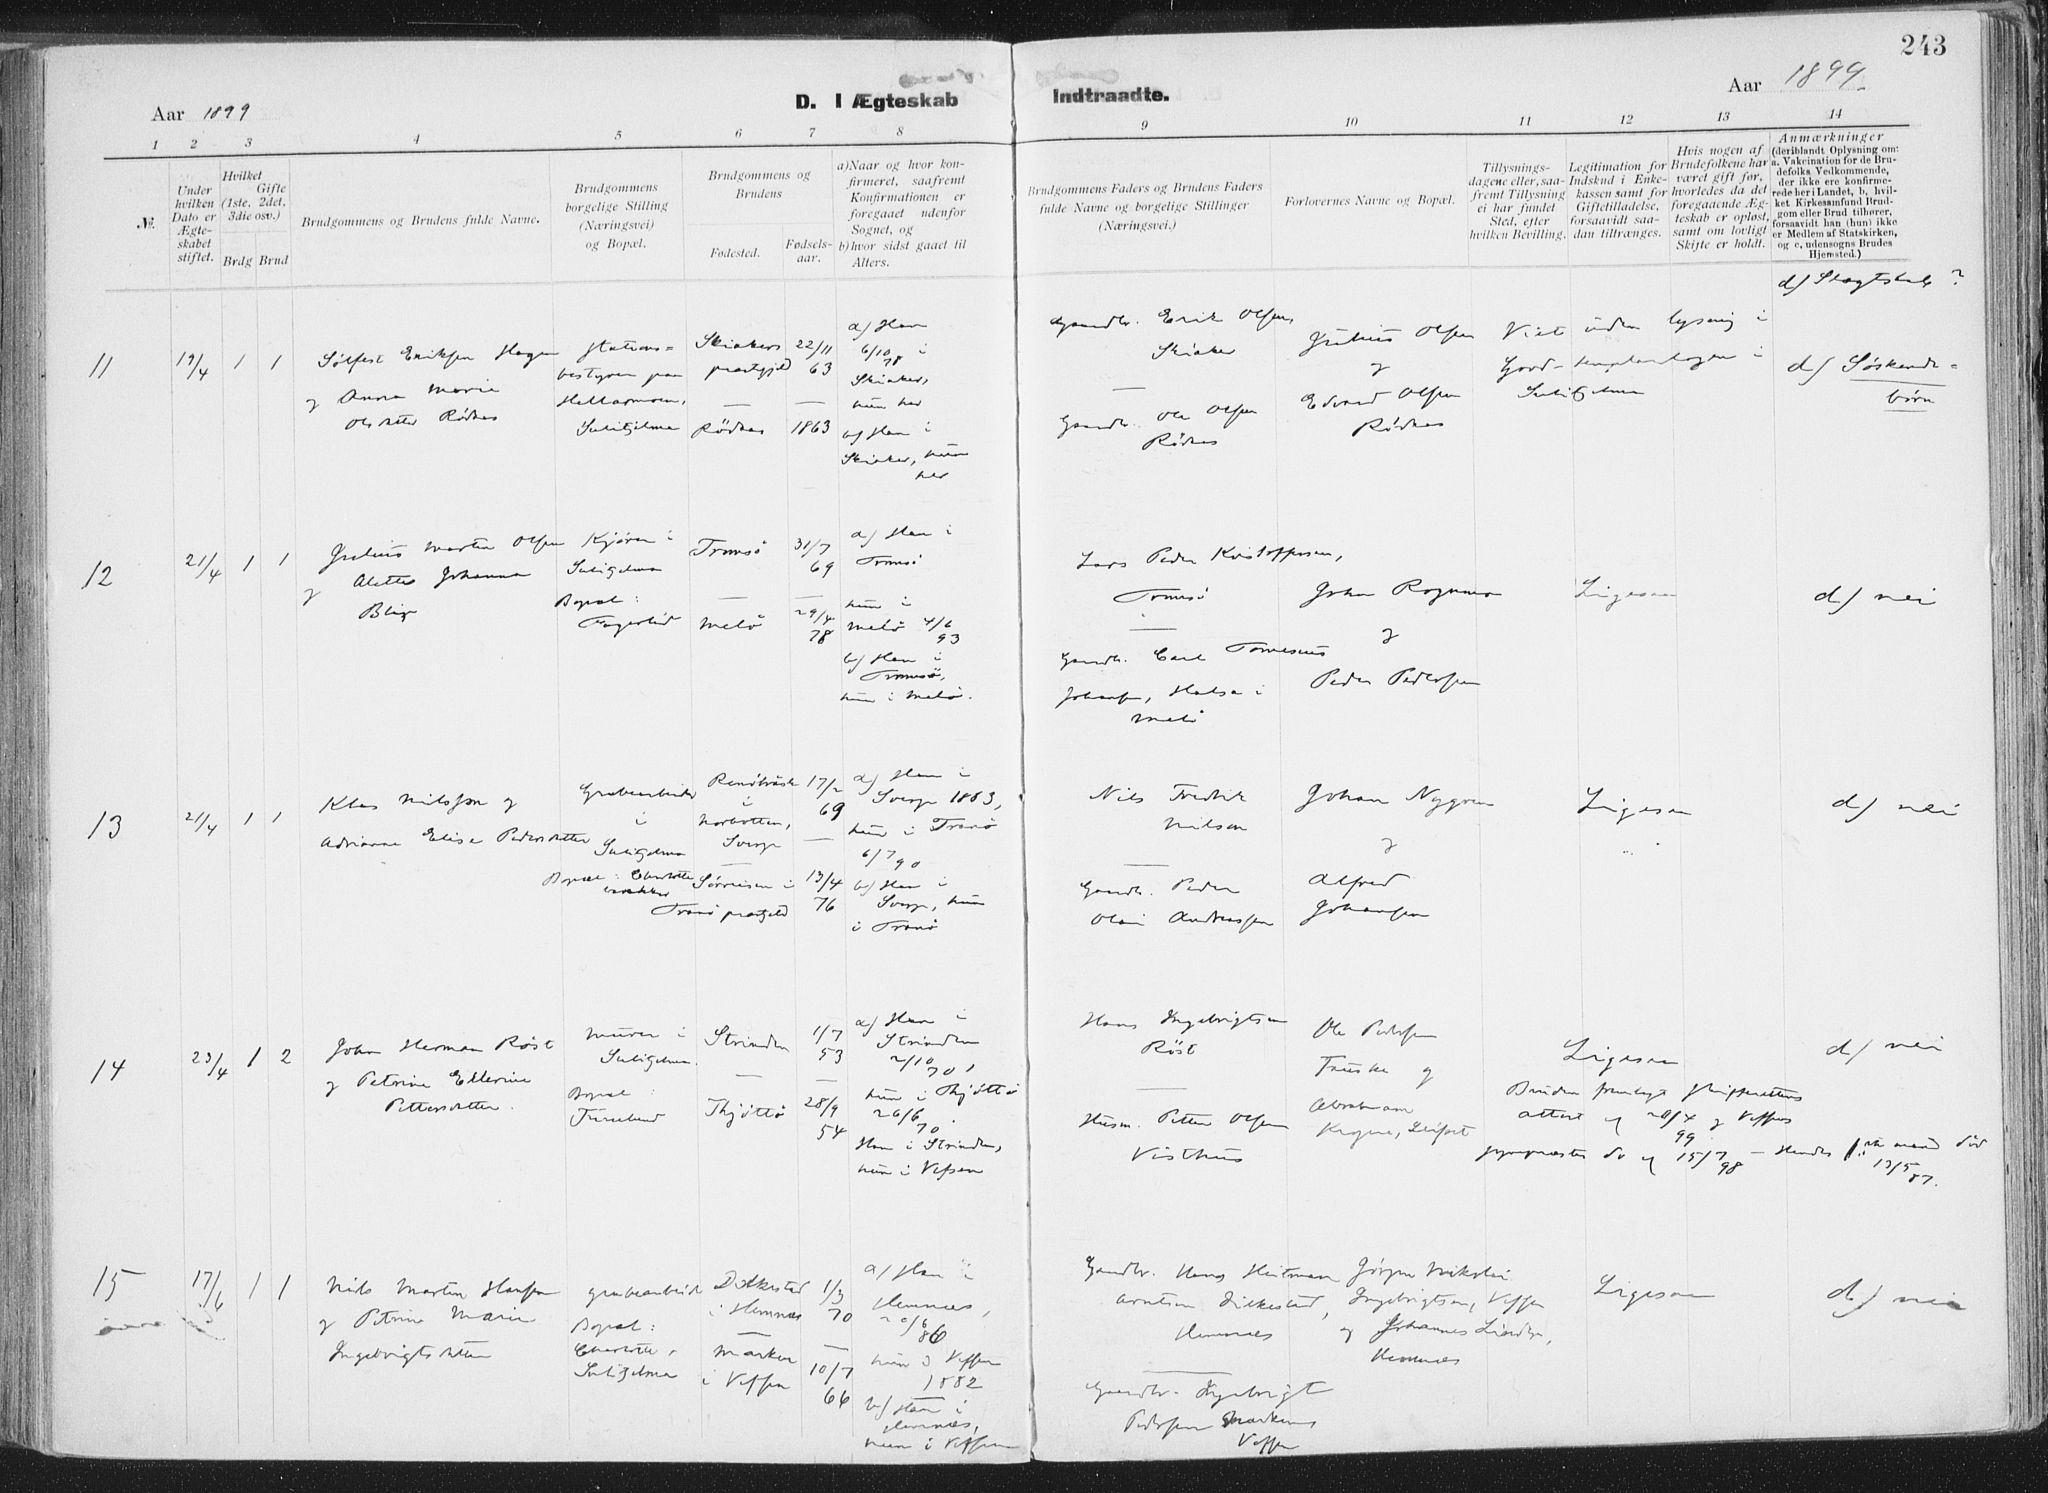 243
Aar 1899
D. I Ægteskab Indtraadte.
Aar 1899
1 2 3 4 5 6 7 8 9 10 11 12 13 14
№.
Under hvilken Dato er Ægteskabet stiftet.
Hvilket Gifte (1ste, 2det, 3die osv.)
Brdg Brud
Brudgommens og Brudens fulde Navne.
Brudgommens borgelige Stilling (Næringsvei) og Bopæl.
Brudgommens og Brudens
Fødested.
Fødsels-aar.
a) Naar og hvor konfirmeret, saafremt Konfirmationen er foregaaet udenfor Sognet, og
b) hvor sidst gaaet til Alters.
Brudgommens Faders og Brudens Faders fulde Navne og borgelige Stillinger (Næringsvei.)
Forlovernes Navne og Bopæl.
Tillysnings-dagene eller, saafremt Tillysning ei har fundet Sted, efter hvilken Bevilling.
Legitimation for Indskud i Enkekassen samt for Giftetilladelse, forsaavidt saadan tiltrænges.
Hvis nogen af Brudefolkene har været gift før, hvorledes da det foregaaende Ægteskab er opløst, samt om lovligt Skifte er holdt.
Anmærkninger (deriblandt Oplysning om: a. Vakcination for de Brudefolks Vedkommende, der ikke ere konfirmerede her i Landet, b, hvilket Kirkesamfund Brudgom eller Brud tilhører, forsaavidt han (hun) ikke er Medlem af Statskirken, og c, udensogns Brudes Hjemsted.)
d/ Slægtskab ?
11
19/4
1 1
Sølfest Eriksen Hagen
og Anna Marie
Olsdatter Rødnes
Stations=
bestyrer paa
Sulitjelma
Skiakers
præstgjeld
Rødnes
22/11 63
1863
a/ Han
6/10 78 i
Skiaker,
hun her
b/ Han i
Skiaker, hun
her
Gaardbr. Erik Olsen,
Skiaker
Gaardbr. Ole Olsen
Rødnes
Julius Olsen
og
Edvard Olsen
Rødnes
Viet uden lysning i
Good-templarlogen i
Sulitjelma
d/ Søskende=
børn
12
21/4
1 1
Julius Martin Olsen
og Alette Johanna
Blix
Kjører i
Sulitjelma
Bopæl:
Fagerlid
Tromsø
Melø
31/7 69
29/4 78
a/ Han i
Tromsø
hun i
Melø 4/6 93
b/ Han i
Tromsø,
hun i Melø.
Lars Peder Kristoffersen,
Tromsø
Gaardbr. Carl
Johansen, Halsa i
Melø
Johan Rognmo
og
Peder Pedersen
Ligesaa
d/ nei
13
21/4
1 1
Klas Nilsson og
Adrianna Elisa Pedersdatter
Grubearbeider
i
Sulitjelma
Bopæl: Charlotte
i
Norbotten,
Sverge
Sørreisen i
Tranø præstgjeld
17/2 69
13/4 76
a/ Han i
Sverge 1883,
hun i Tranø
6/7 90
b/ Han i
Sverge, hun
i Tranø
Nils Fredrik
Nilson
Gaardbr. Peder
Olai Andreassen
Johan Nygren
og
Alfred
Johansen
Ligesaa
d/ nei
14
23/4
1 2
Johan Herman Røst
og Petrine Ellerine
Pettersdatter.
Murer i
Sulitjelma.
Bopæl:
Furulund
Strinden
Thjøttø
1/7 53
28/9 54
a/ Han i
Strinden
2/10 70,
hun i Thjøttø
26/6 70.
Han i Strinden,
hun i Vefsen
Hans Ingebrigtsen
Røst
Husm. Petter Olsen
Visthus
Ole Pedersen
Fauske og
Abraham
Ligesaa
Bruden fremlagt Skifterettens
attest af 20/4 99 og Vefsens
sognepræsts do af 15/7 98 – Hendes mand død
13/5 87.
d/ nei
15
17/6
1 1
Nils Martin Hansen
og Petrine Marie
Ingebrigtsdatter
Grubearbeider
Bopæl:
Charlotte,
Sulitjelma
i Hemnes
Marken
i Vefsen
1/3 70
10/7 66
a/ Han i
Hemnes,
20/6 86
hun i Vefsen
1882
b/ Han i
Hemnes,
hun i Vefsen
Gaardbr. Hans Heitman
Arntsen
Hemnes
Gaardbr. Ingebrigt
Pedersen Marken
Vefsen
Jørgen Nikolai
Ingebrigtsen, Vefsen
og Johannes
Hemnes
Ligesaa
d/ nei